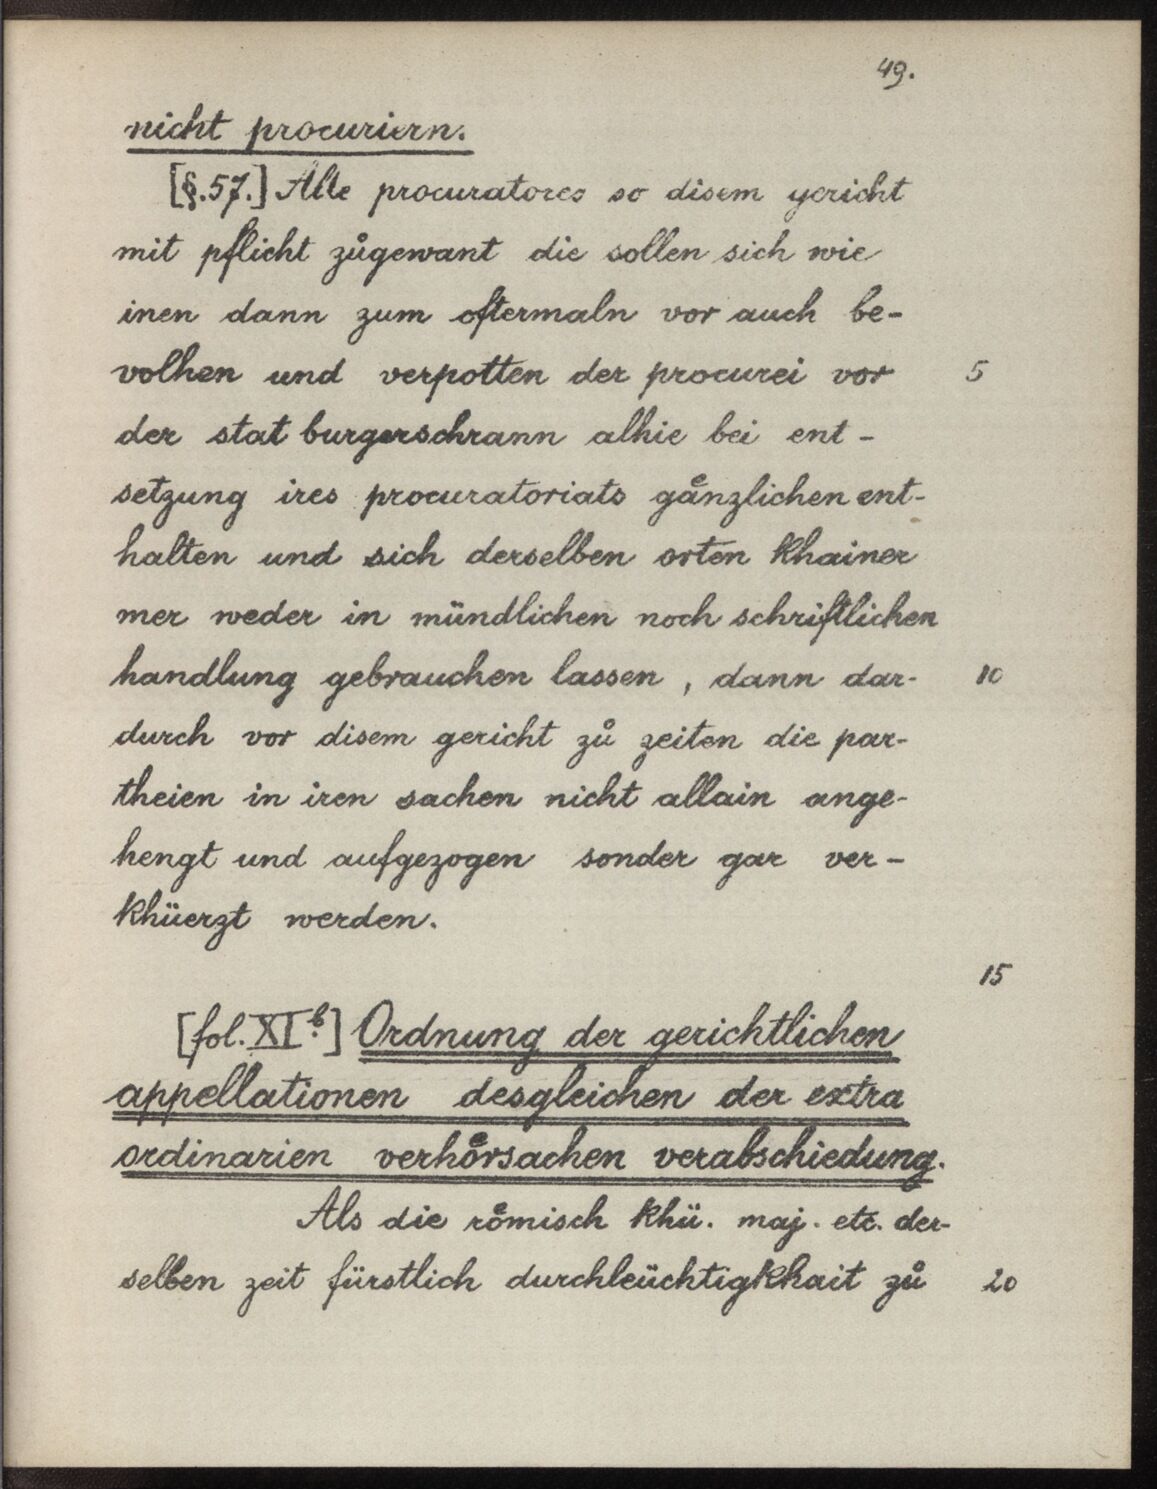 49.
nicht procuriern.
[§.57.] Alle procuratores so disem gericht
mit pflicht zůgewant die sollen sich wie
inen dann zum oftermaln vor auch be-
volhen und verpotten der procurei vor 5
der stat burgerschrann alhie bei ent-
setzung ires procuratoriats gaͤnzlichen ent-
halten und sich derselben orten khainer
mer weder in mündlichen noch schriftlichen
handlung gebrauchen lassen, dann dar- 10
durch vor disem gericht zů zeiten die par-
theien in iren sachen nicht allain ange-
hengt und aufgezogen sonder gar ver-
khüerzt werden.
15
[fol. XI.b] Ordnung der gerichtlichen
appellationen desgleichen der extra
ordinarien verhoͤrsachen verabschiedung.
Als die roͤmisch khü. maj. etc. der-
selben zeit fürstlich durchleüchtigkhait zů 20